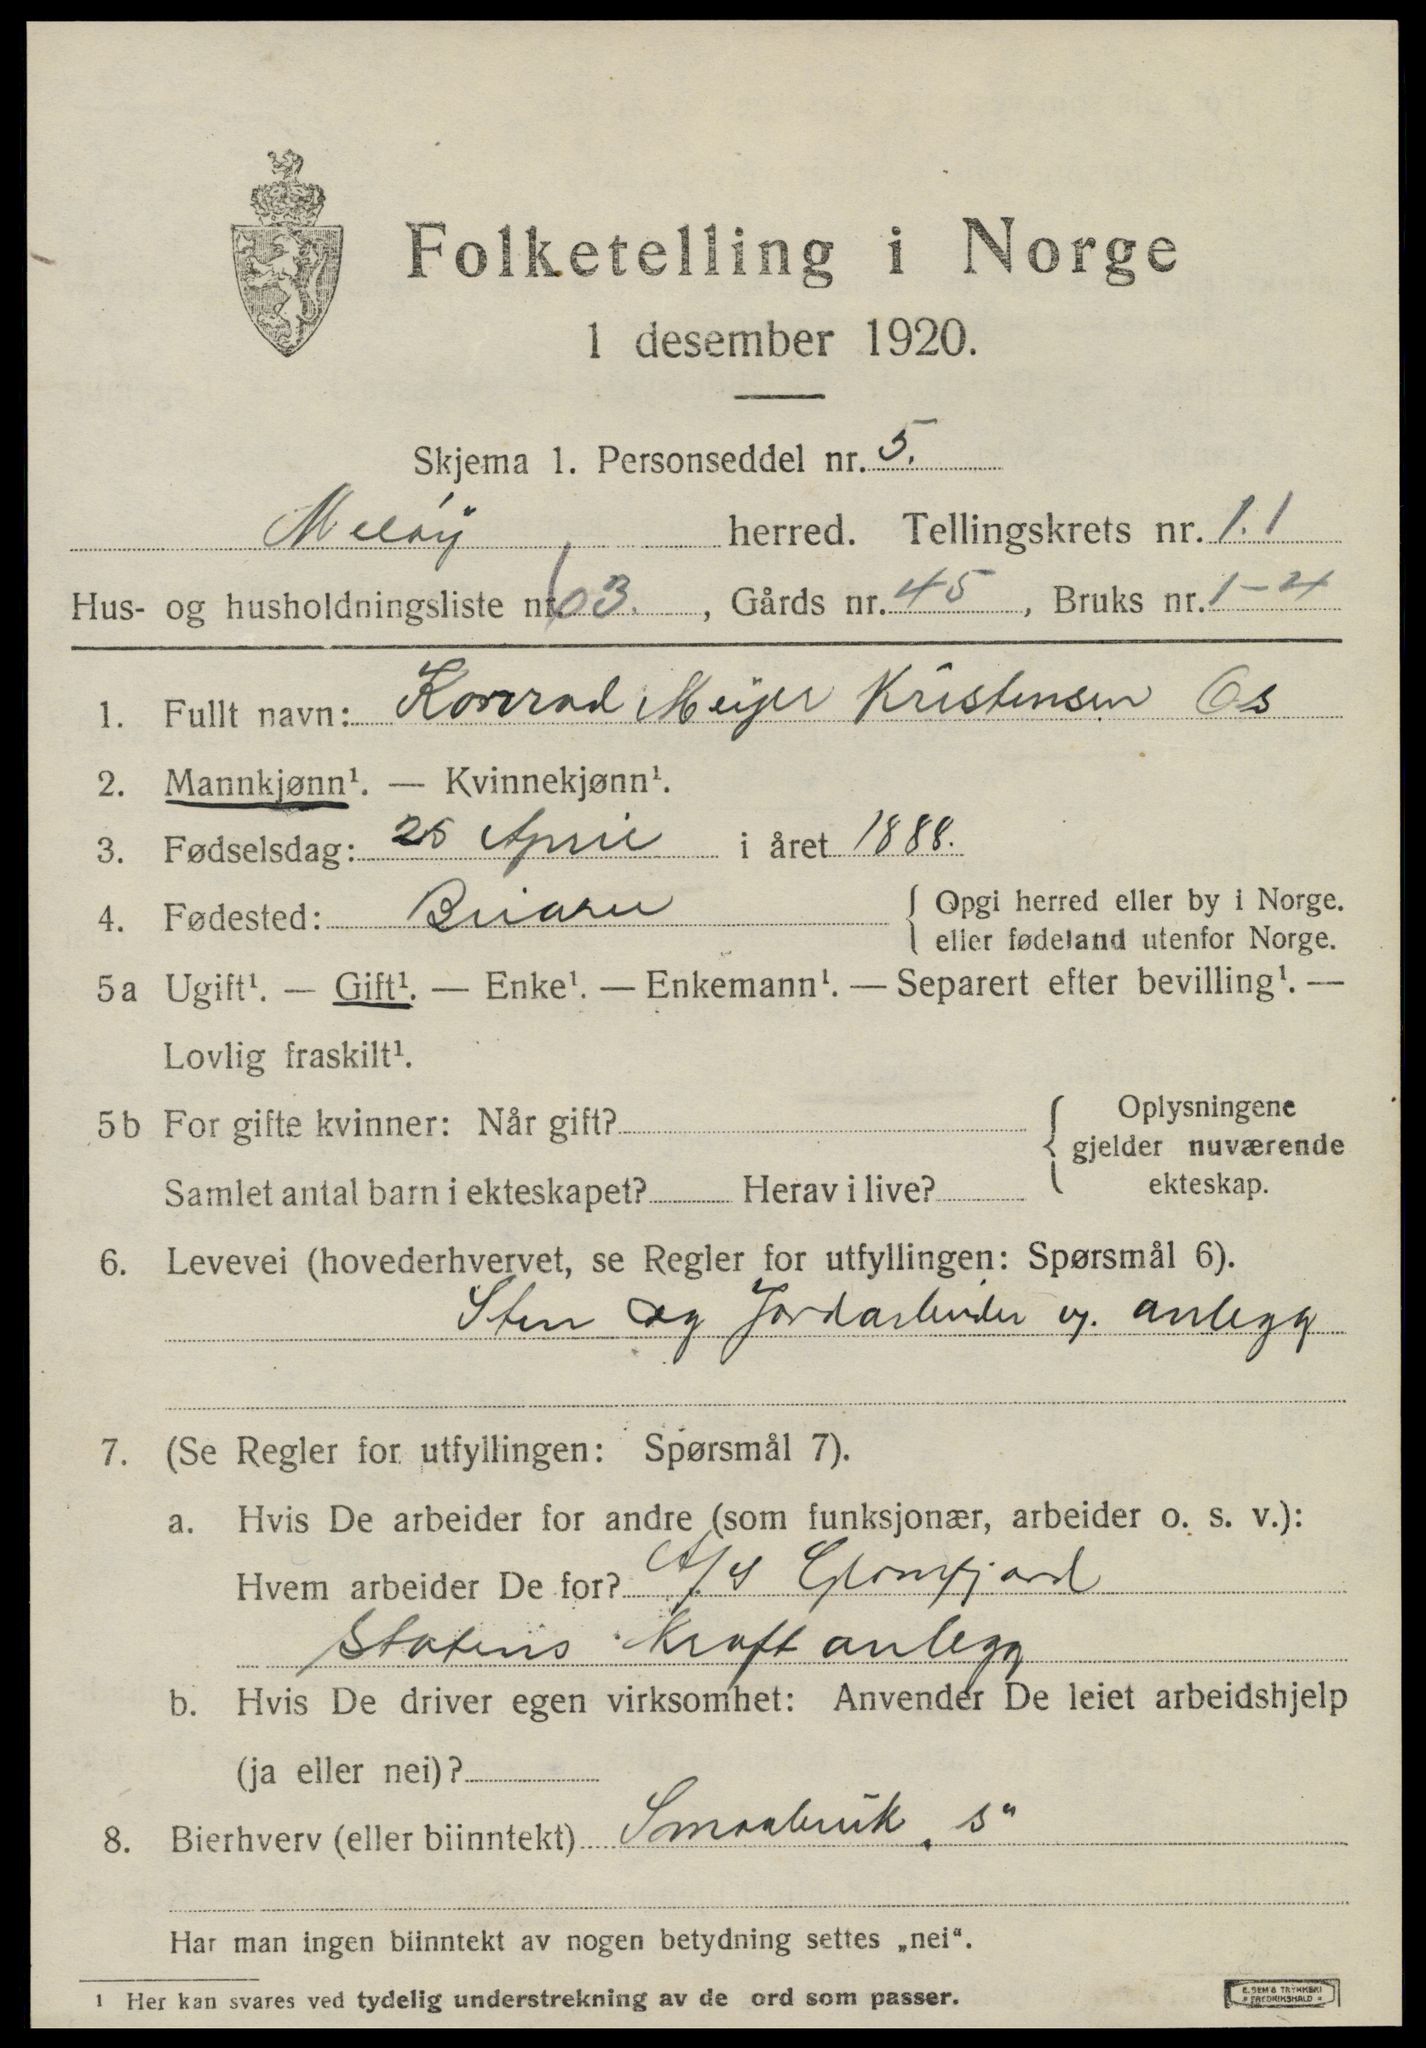 Folketelling i Norge
1 desember 1920.
Skjema 1. Personseddel nr. 5.
Meløy herred. Tellingskrets nr. 11
Hus- og husholdningsliste nr. 103., Gårds nr. 45, Bruks nr. 1-4
1. Fullt navn: Konrad Meyer Kristensen Os
2. Mannkjønn¹. — Kvinnekjønn¹.
3. Fødselsdag: 25 April i året 1888.
4. Fødested: { Opgi herred eller by i Norge.
eller fødeland utenfor Norge.
5a Ugift¹. — Gift¹. — Enke¹. — Enkemann¹. — Separert efter bevilling¹. —
Lovlig fraskilt¹.
5b For gifte kvinner: Når gift? { Oplysningene
gjelder nuværende
Samlet antal barn i ekteskapet? Herav i live? ekteskap.
6. Levevei (hovederhvervet, se Regler for utfyllingen: Spørsmål 6).
Sten og Jordarbeider anlegg
7. (Se Regler for utfyllingen: Spørsmål 7).
a. Hvis De arbeider for andre (som funksjonær, arbeider o. s. v.):
Hvem arbeider De for? A/S Glomfjord
Statens Kraftanlegg
b. Hvis De driver egen virksomhet: Anvender De leiet arbeidshjelp
(ja eller nei)?
8. Bierhverv (eller biinntekt) Smaabruk „s“
Har man ingen biinntekt av nogen betydning settes „nei“.
¹ Her kan svares ved tydelig understrekning av de ord som passer.